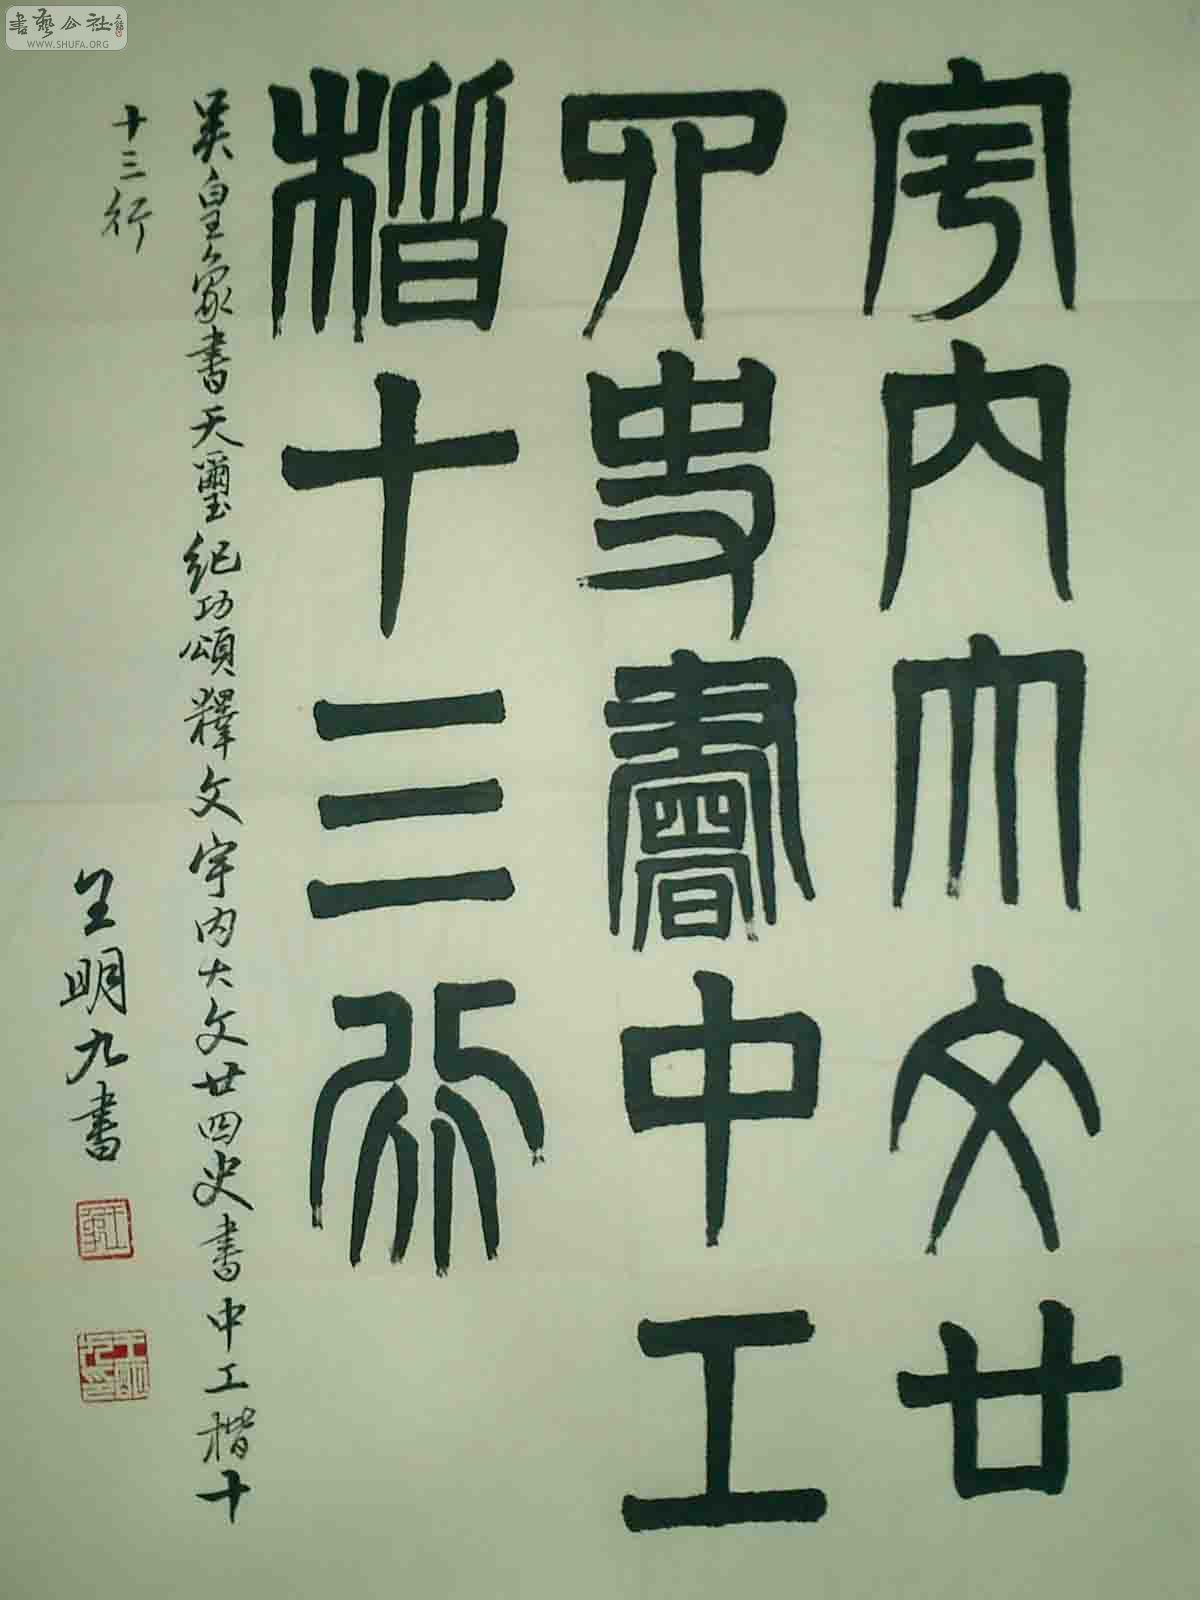 宇内大文廿
四史書中工
楷十三行
吴皇象書天璽紀功頌釋文宇内大文廿四史書中工楷十
十三行
王明九書
書藝公社
WWW.SHUFA.ORG